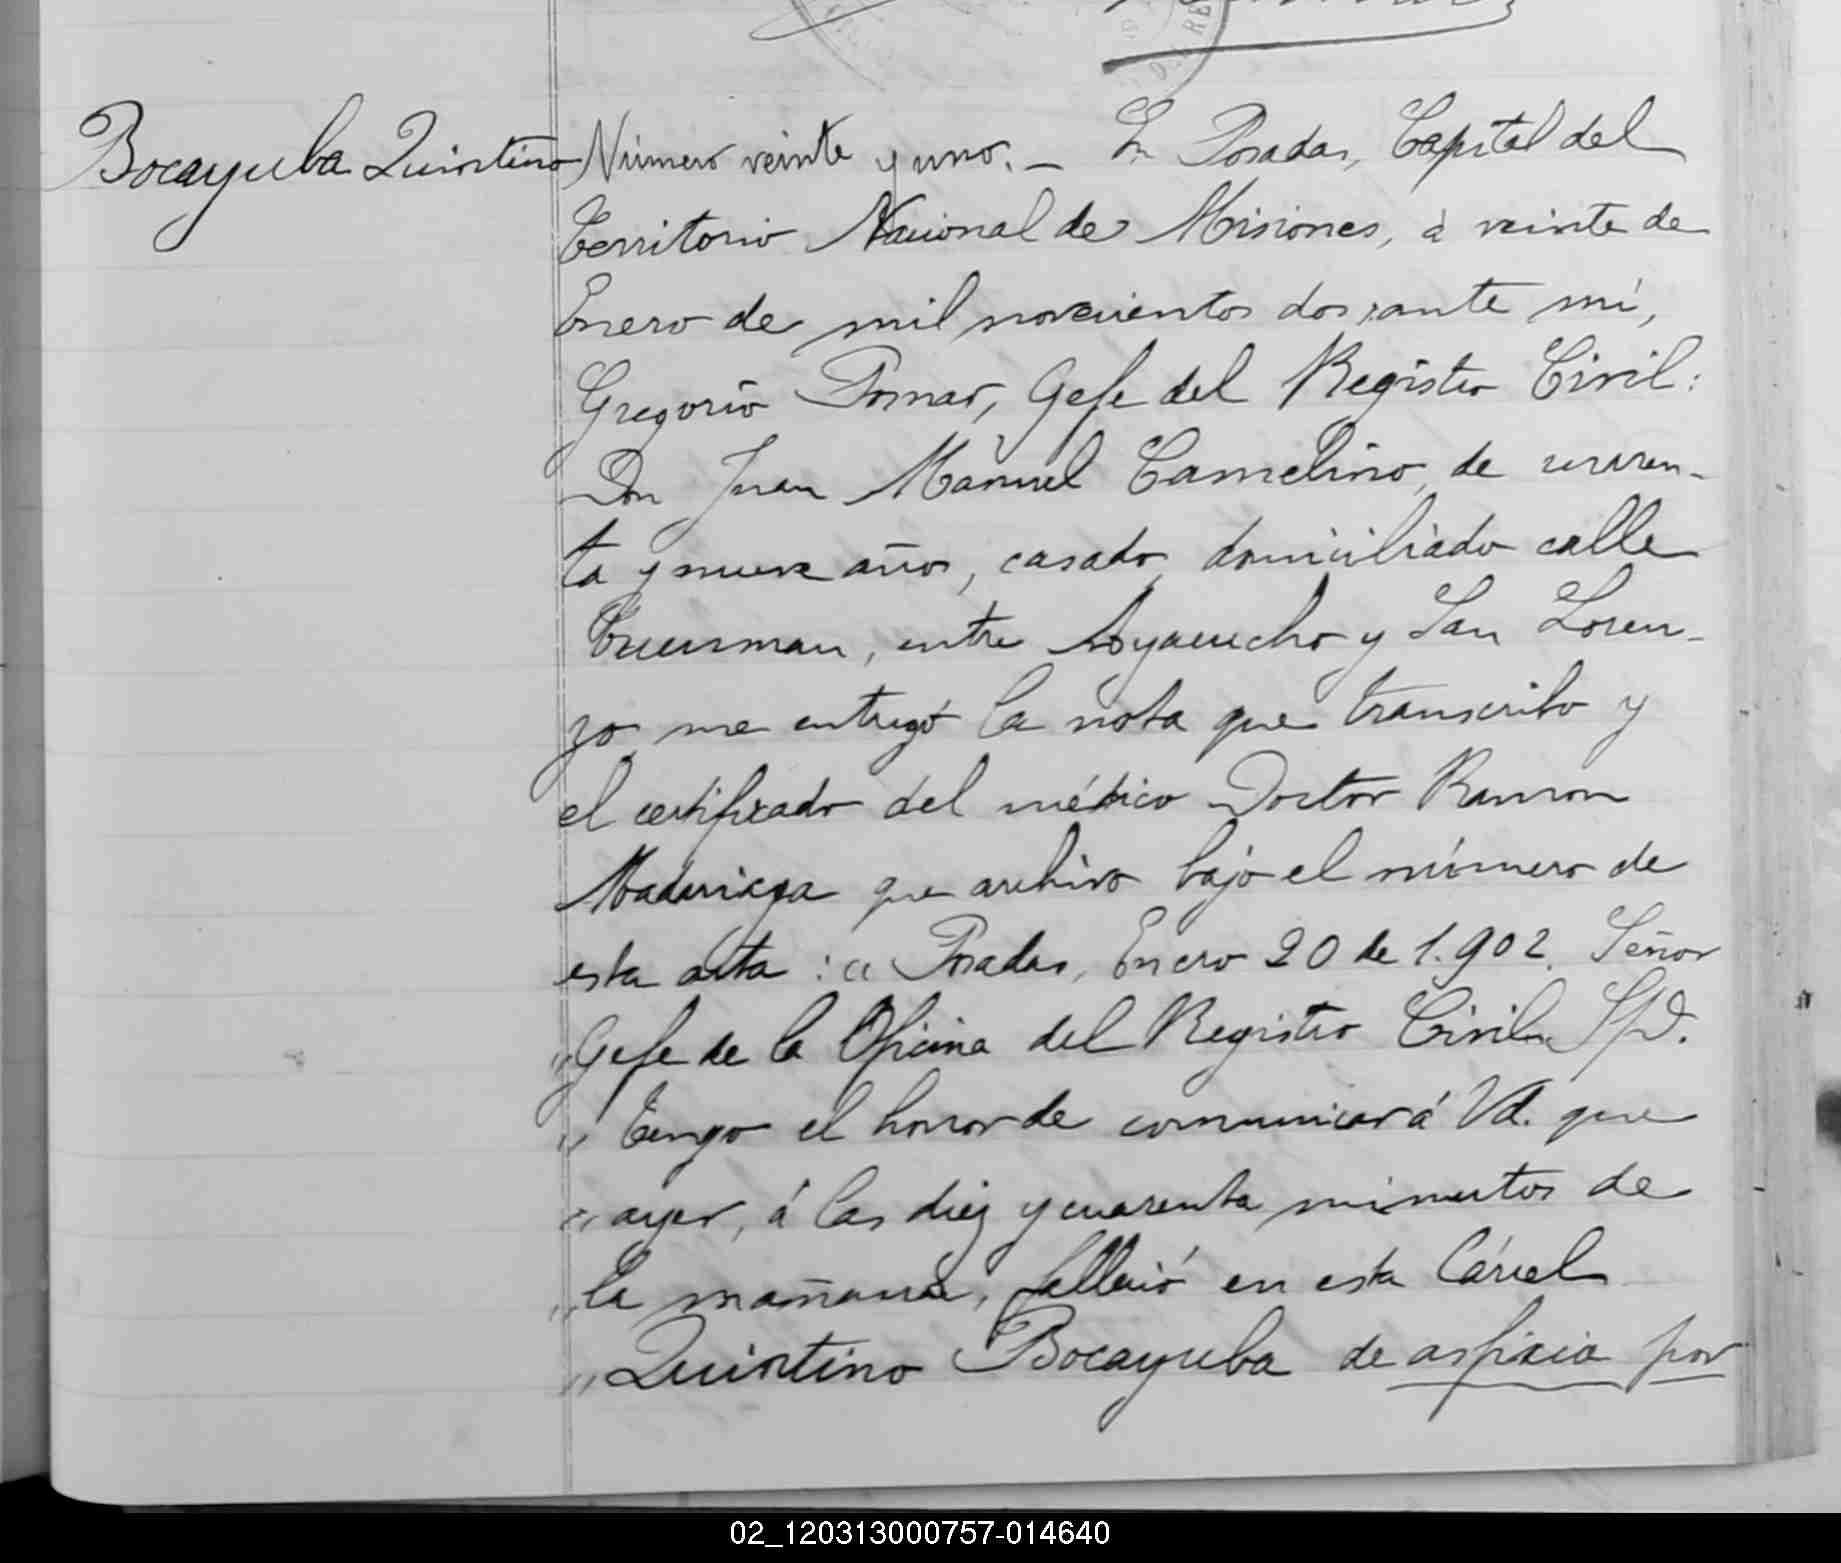 Bocayuba Quintino
Número veinte y uno. — En Posadas, Capital del
Territorio Nacional de Misiones, á veinte de
Enero de mil novecientos dos, ante mí,
Gregorio Pomar, Gefe del Registro Civil:
Don Juan Manuel Camelino, de cuaren-
ta y nueve años, casado, domiciliado calle
Tucuman, entre Ayacucho y San Loren-
zo, me entregó la nota que transcribo y
el certificado del médico Doctor Ramon
Madariaga que archivo bajo el número de
esta acta: "Posadas, Enero 20 de 1.902. Señor
"Gefe de la Oficina del Registro Civil. S/D.
" Tengo el honor de comunicar á Vd. que
" ayer, á las diez y cuarenta minutos de
" la mañana, falleció en esta Cárcel
" Quintino Bocayuba de asfixia por
02_120313000757-014640